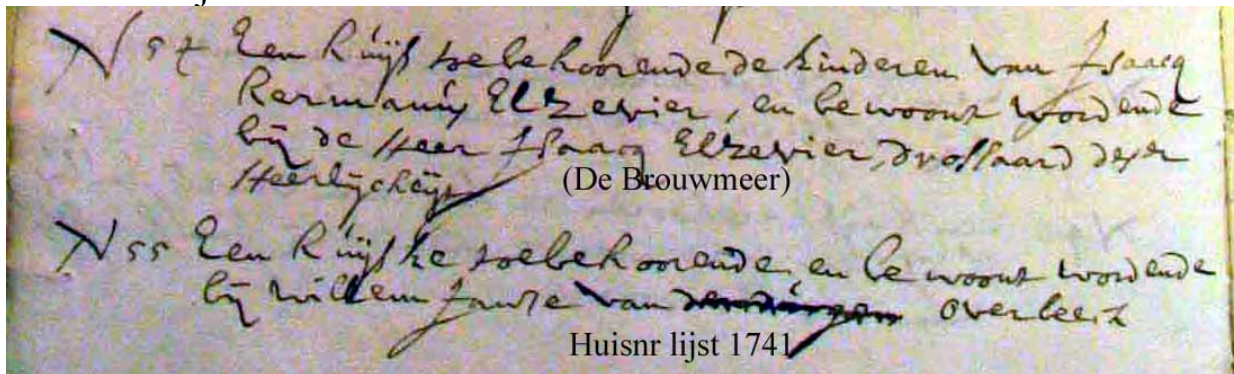 N 54 Een Huijs toebehoorende de kinderen van Isaacq
Hermanus Elzevier, en bewoont wordende
bij de Heer Isaacq Elzevier, drossaard deser
Heerlijcheijt
(De Brouwmeer)
N 55 Een Huijske toebehoorende en bewoont wordende
bij Willem Janse van overbeek
Huisnr lijst 1741